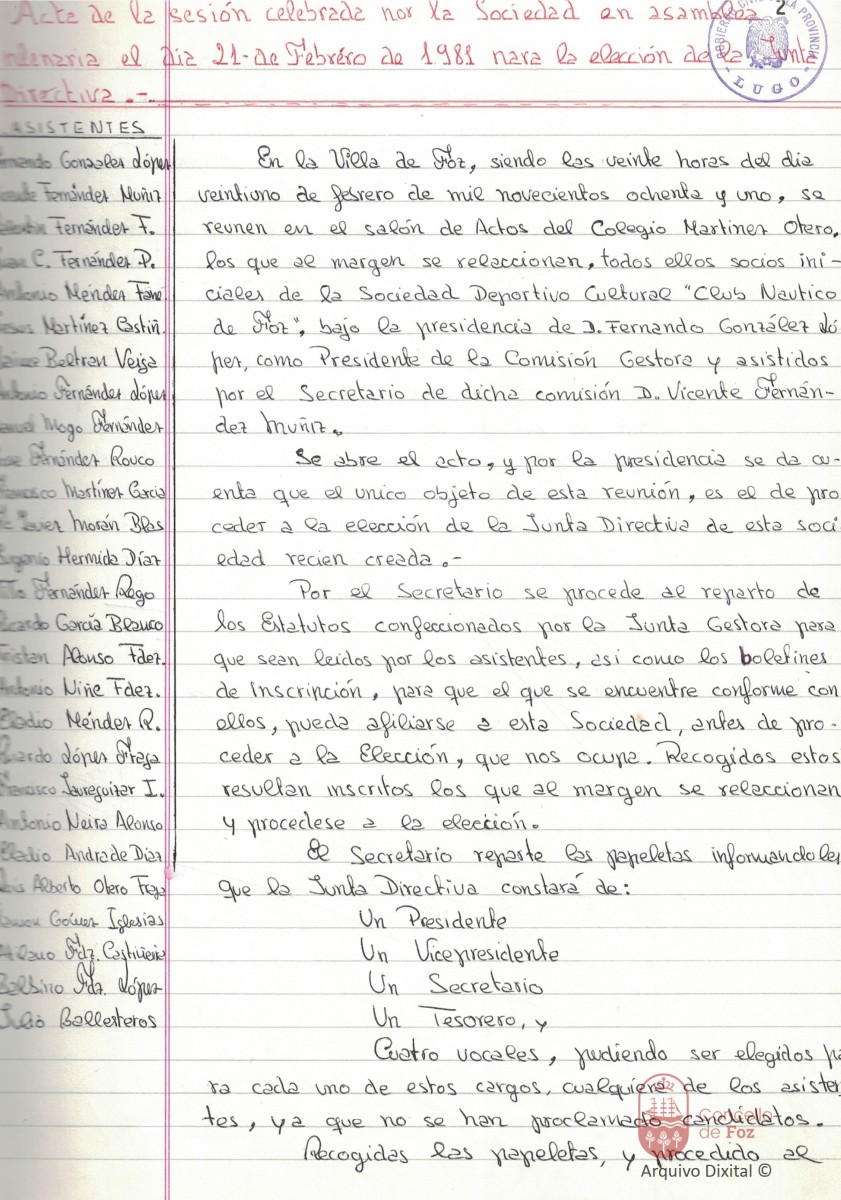 Acta de la sesión celebrada por la Sociedad en asamblea
ordenaria el dia 21-de Febréro de 1.981 para la elección de la Junta
Directiva.-
2
GOBIERNO CIVIL DE LA PROVINCIA
LUGO
ASISTENTES
Fernando Gonzalez López
Vicente Fernández Muñiz
Fernández F.
C. Fernández P.
Antonio Méndez
Jesus Martínez Castiñ.
Jaime Beltran Veiga
Antonio Fernández López
Manuel Mogo Fernández
Jose Fernández Rouco
Francisco Martínez Garcia
Javier Morán Blas
Eugenio Hermida Díaz
Fernández Rego
Ricardo García Blanco
Tristan Alonso Fdez.
Antonio Niñe Fdez.
Eladio Méndez R.
López Fraga
Francisco Jaureguizar I.
Antonio Neira Alonso
Eladio Andrade Diaz
Luis Alberto Otero Fraga
Ramon Gómez Iglesias
Fdz. Castiñeira
Balbino Fdz. López
Julio Ballesteros
En la Villa de Foz, siendo las veinte horas del dia
veintiuno de febrero de mil novecientos ochenta y uno, se
reunen en el salón de Actos del Colegio Martinez Otero,
los que al margen se relaccionan, todos ellos socios ini-
ciales de la Sociedad Deportivo Cultural "Club Nautico
de Foz", bajo la presidencia de D. Fernando González Ló
pez, como Presidente de la Comisión Gestora y asistidos
por el Secretario de dicha comisión D. Vicente Fernán-
dez Muñiz.
Se abre el acto, y por la presidencia se da cu-
enta que el unico objeto de esta reunión, es el de pro
ceder a la elección de la Junta Directiva de esta soci
edad recien creada.-
Por el Secretario se procede al reparto de
los Estatutos confeccionados por la Junta Gestora para
que sean leidos por los asistentes, asi como los boletines
de inscripción, para que el que se encuentre conforme con
ellos, pueda afiliarse a esta Sociedad, antes de pro-
ceder a la Elección, que nos ocupa. Recogidos estos
resultan inscritos los que al margen se relaccionan
y procedese a la elección.
El Secretario reparte las papeletas informandoles
que la Junta Directiva constará de:
Un Presidente
Un Vicepresidente
Un Secretario
Un Tesorero, y
Cuatro vocales, pudiendo ser elegidos pa
ra cada uno de estos cargos, cualquiera de los asisten
tes, ya que no se han proclamado candidatos.
Recogidas las papeletas, y procedido al
Concello
de Foz
Arquivo Dixital ©